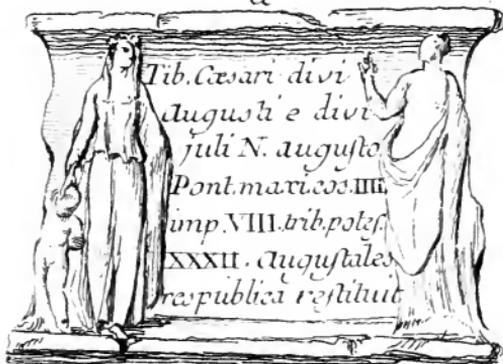 Tib. Cæsari divi
augusti e divi
juli N. augusto
Pont. maxi cos. IIII.
imp VIII. trib. potes.
XXXII. augustales
respublica restituit